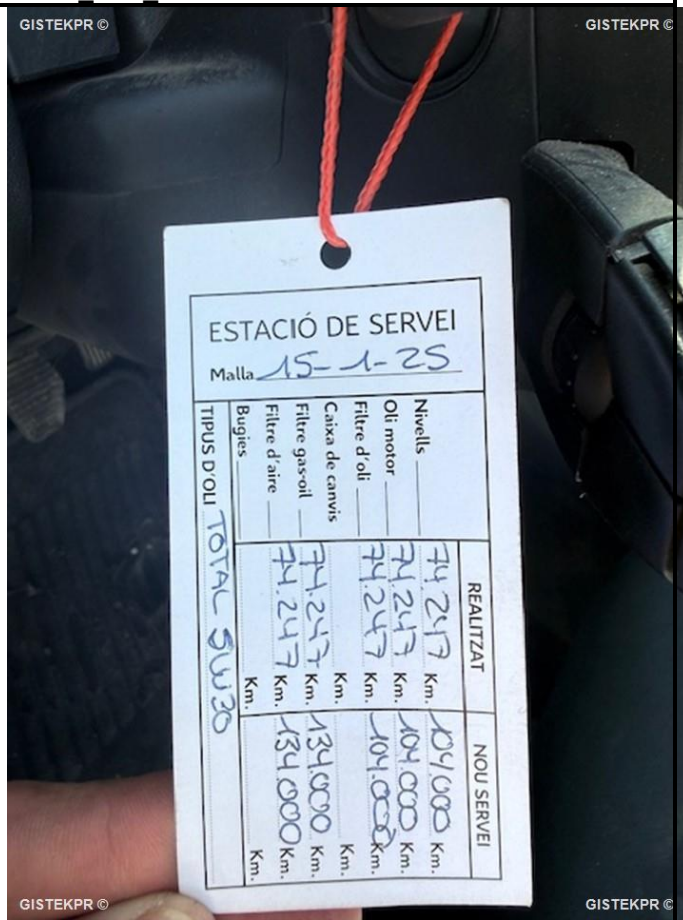 GISTEKPR © GISTEKPR ©
ESTACIÓ DE SERVEI
Malla 15-1-25
REALITZAT NOU SERVEI
Nivells 74.247 Km. 104.000 Km.
Oli motor 74.247 Km. 104.000 Km.
Filtre d'oli 74.247 Km. 104.000 Km.
Caixa de canvis Km. Km.
Filtre gas-oil 74.247 Km. 134.000 Km.
Filtre d'aire 74.247 Km. 134.000 Km.
Bugies Km. Km.
TIPUS D'OLI TOTAL 5W30
GISTEKPR © GISTEKPR ©